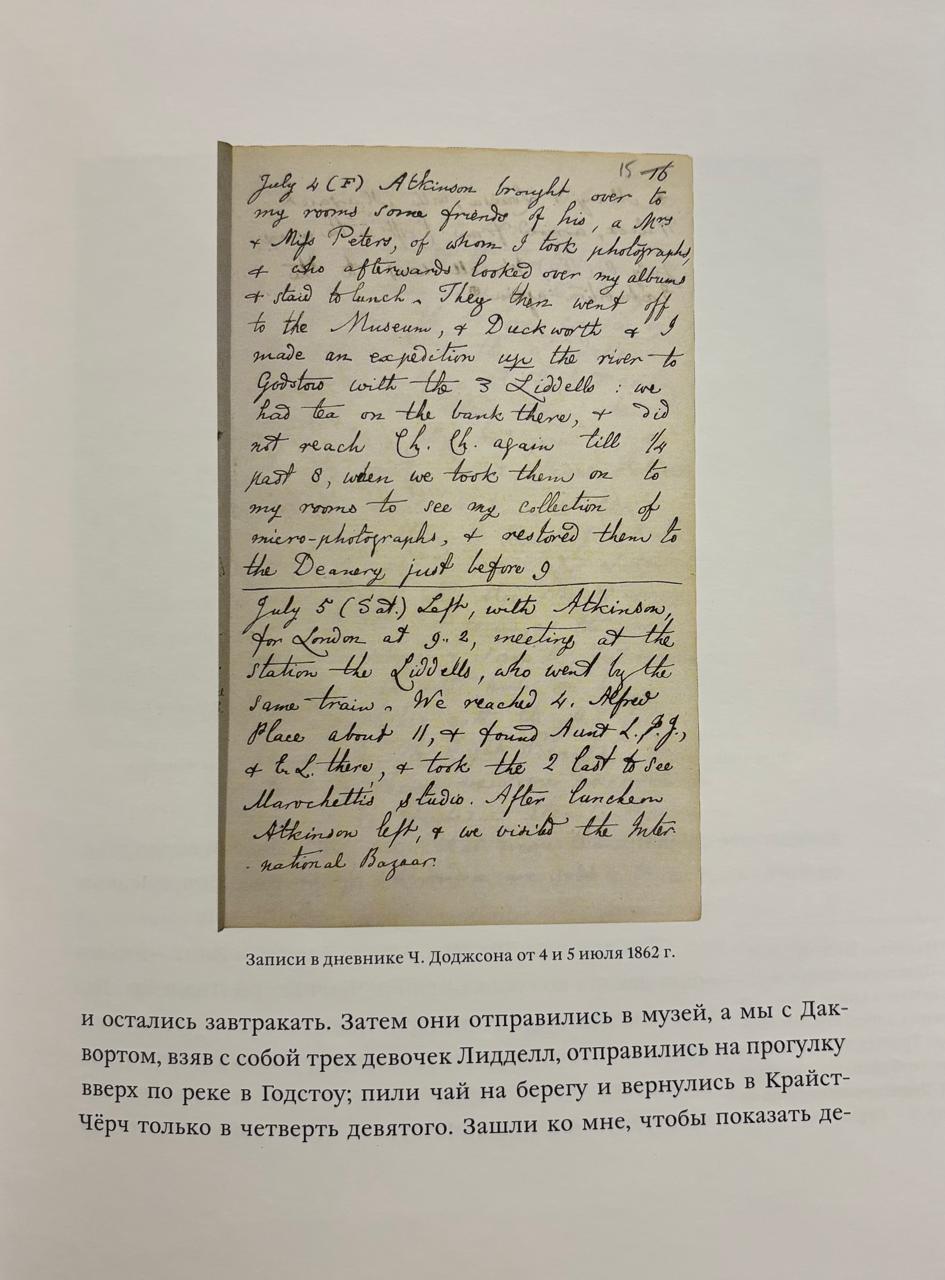 15 16
July 4 (F) Atkinson brought over to
my rooms some friends of his, a Mrs
& Miss Peters, of whom I took photographs,
& who afterwards looked over my albums
& staid to lunch. They then went off
to the Museum, & Duckworth & I
made an expedition up the river to
Godstow with the 3 Liddells : we
had tea on the bank there, & did
not reach Ch. Ch. again till 1/4
past 8, when we took them on to
my rooms to see my collection of
micro-photographs, & restored them to
the Deanery, just before 9
July 5 (Sat.) Left, with Atkinson,
for London at 9.. 2, meeting at the
station the Liddells, who went by the
same train. We reached 4. Alfred
Place about 11, & found Aunt L. P.J.,
& L. there, & took the 2 last to see
Marochetti's studio. After luncheon
Atkinson left, & we visited the Inter
-national Bazaar.
Записи в дневнике Ч. Доджсона от 4 и 5 июля 1862 г.
и остались завтракать. Затем они отправились в музей, а мы с Дак-
вортом, взяв с собой трех девочек Лидделл, отправились на прогулку
вверх по реке в Годстоу; пили чай на берегу и вернулись в Крайст-
Чёрч только в четверть девятого. Зашли ко мне, чтобы показать де-